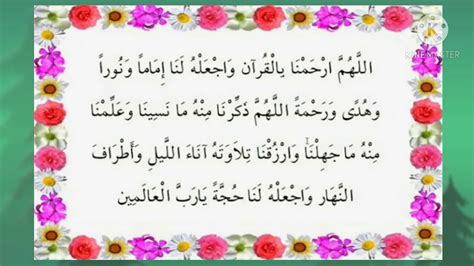 اللَّهُمَّ ارْحَمْنَا بِالْقُرْآن وَاجْعَلْهُ لَنَا إِمَاماً وَنُوراً
وَهُدًى وَرَحْمَةً اللَّهُمَّ ذَكِّرْنَا مِنْهُ مَا نَسِينَا وَعَلِّمْنَا
مِنْهُ مَا جَهِلْنَا وَارْزُقْنَا تِلاَوَتَهُ آنَاءَ اللَّيلِ وَأَطْرَافَ
النَّهَارِ وَاجْعَلْهُ لَنَا حُجَّةً يَارَبَّ الْعَالَمِين